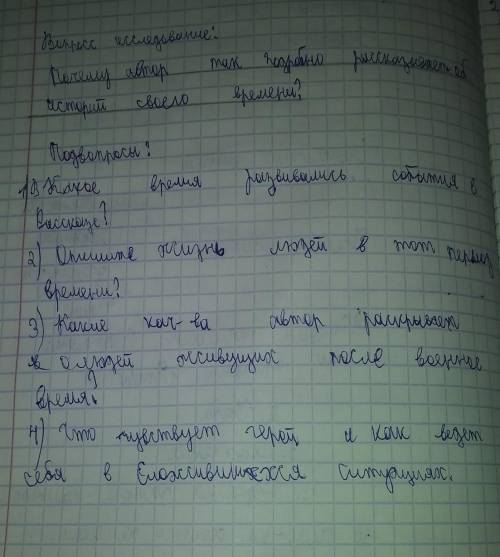 Вопросс исследование:
Почему автор так подробно рассказывает об
историй своего времени?
Подвопросы:
1) В Какое время развивались события в
Рассказе?
2) Опишите жизнь людей в тот период
времени?
3) Какие кач-ва автор раскрывает
в людей живущих после военное
время?
4) Что чувствует герой и как ведет
себя в сложившихся ситуациях.